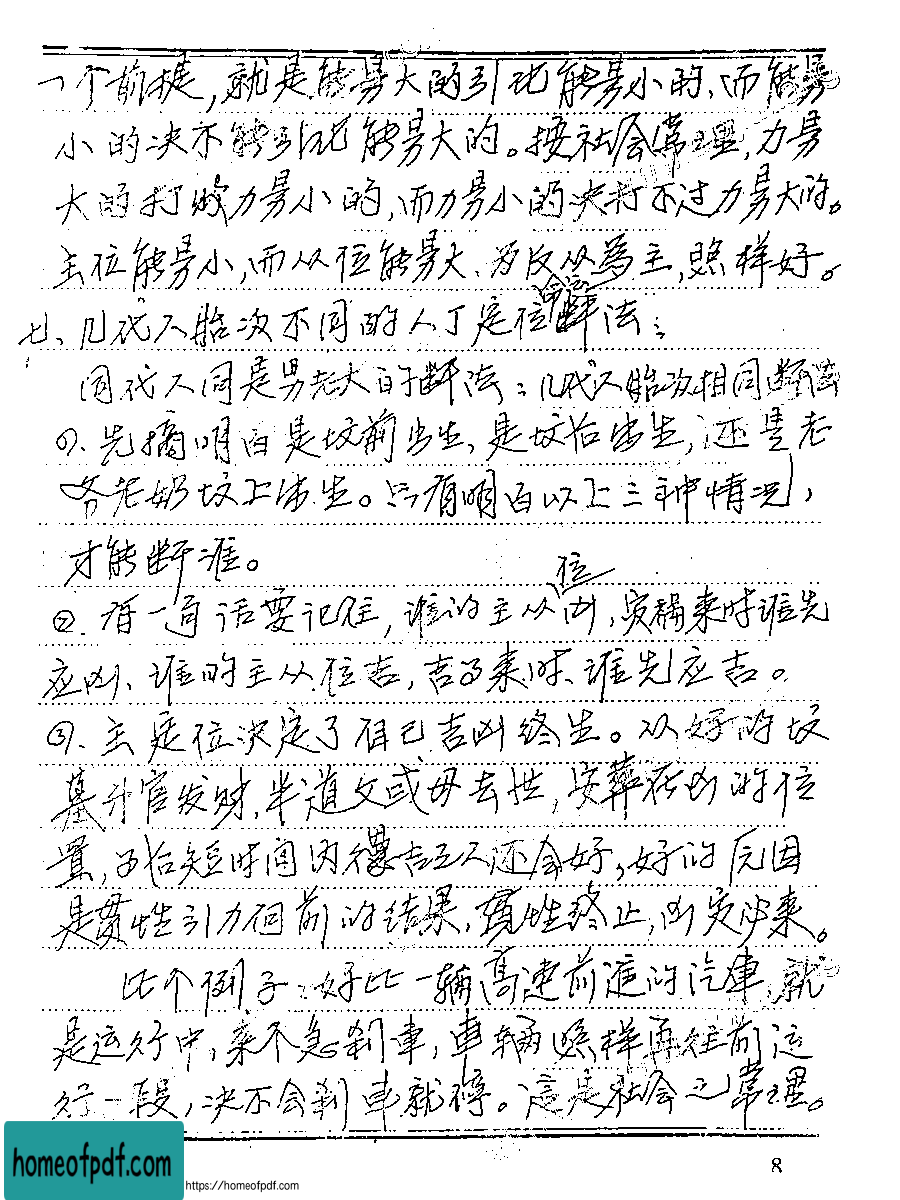 一个前提,就是能量大的引化能量小的、而能量
小的决不能引化能量大的。按社会常理,力量
大的打败力量小的,而力量小的决打不过力量大的。
主位能量小,而从位能量大、为反从為主,照样好。
七、几代人胎次不同的人丁定位命运断法:
同代人同是男老大的断法:几代人胎次相同断法
①、先搞明白是坟前出生、是坟后出生,还是老
爷老奶坟上出生。只有明白以上三种情况,
才能断准。
②、有一句话要记住,谁的主从位凶,灾祸来时谁先
应凶、谁的主从位吉,吉事来时、谁先应吉。
③、主定位决定了自己吉凶终生。从好的坟
墓升官发财,半道父或母去世,安葬在凶的位
置,前后短时间内得吉之人还会好,好的原因
是贯性引力向前的结果,贯性终止,凶灾必来。
比个例子:好比一辆高速前进的汽車,就
是运行中,来不急刹車,車辆照样再往前运
行一段,决不会刹車就停。這是社会之常理。
8
homeofpdf.com
https://homeofpdf.com